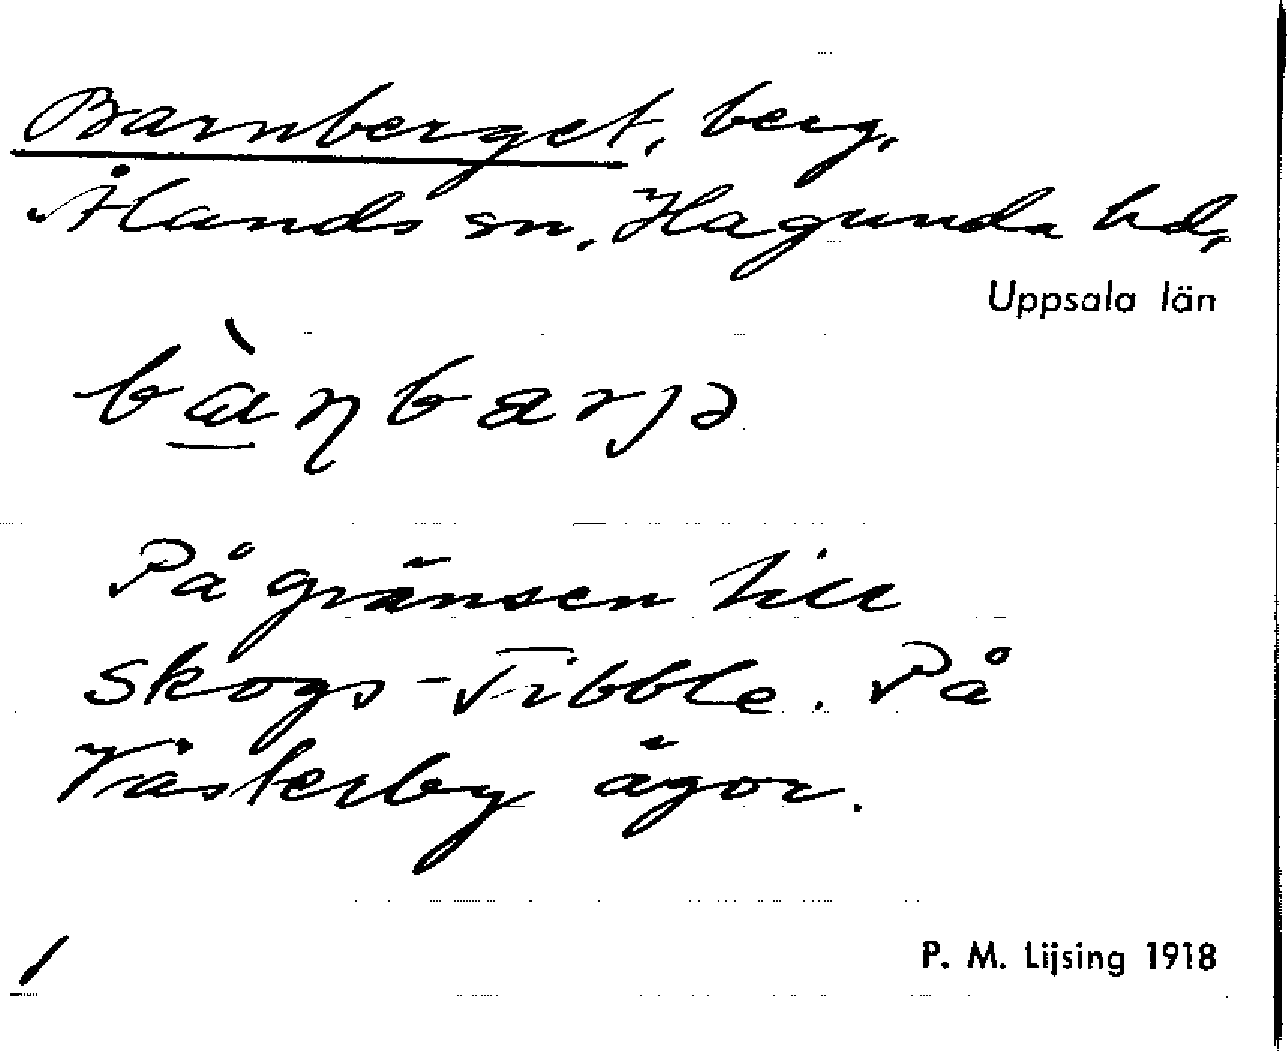 Barnberget, berg,
Ålands sn, Hagunda hd,
Uppsala län
bànbarjə
På gränsen till
Skogs-Tibble. På
Västerby ägor.
P. M. Lijsing 1918